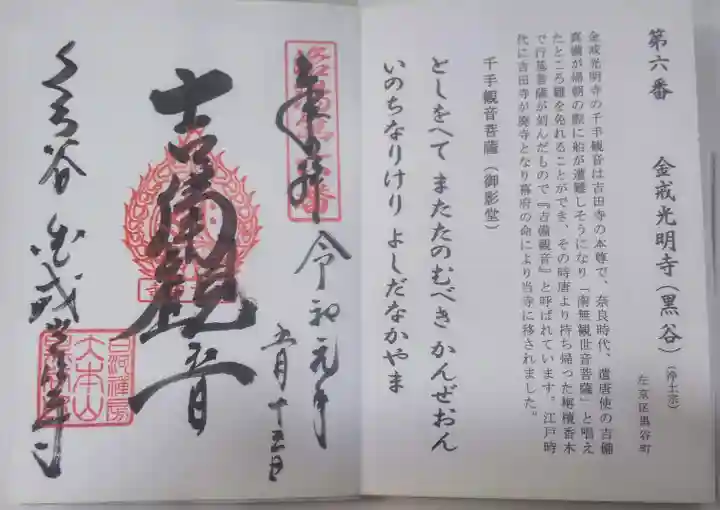 第六番 金戒光明寺(黒谷)(浄土宗)
左京区黒谷町
金戒光明寺の千手観音は吉田寺の本尊で、奈良時代、遣唐使の吉備
真備が帰朝の際に船が遭難しそうになり「南無観世音菩薩」と唱え
たところ難を免れることができ、その時唐より持ち帰った栴檀香木
で行基菩薩が刻んだもので『吉備観音』と呼ばれています。江戸時
代に吉田寺が廃寺となり幕府の命により当寺に移されました。
千手観音菩薩(御影堂)
としをへて またたのむべき かんぜおん
いのちなりけり よしだなかやま
奉拝
令和元年
五月十五日
吉備観音
くろ谷 金戒光明寺
白河禅房
大本山